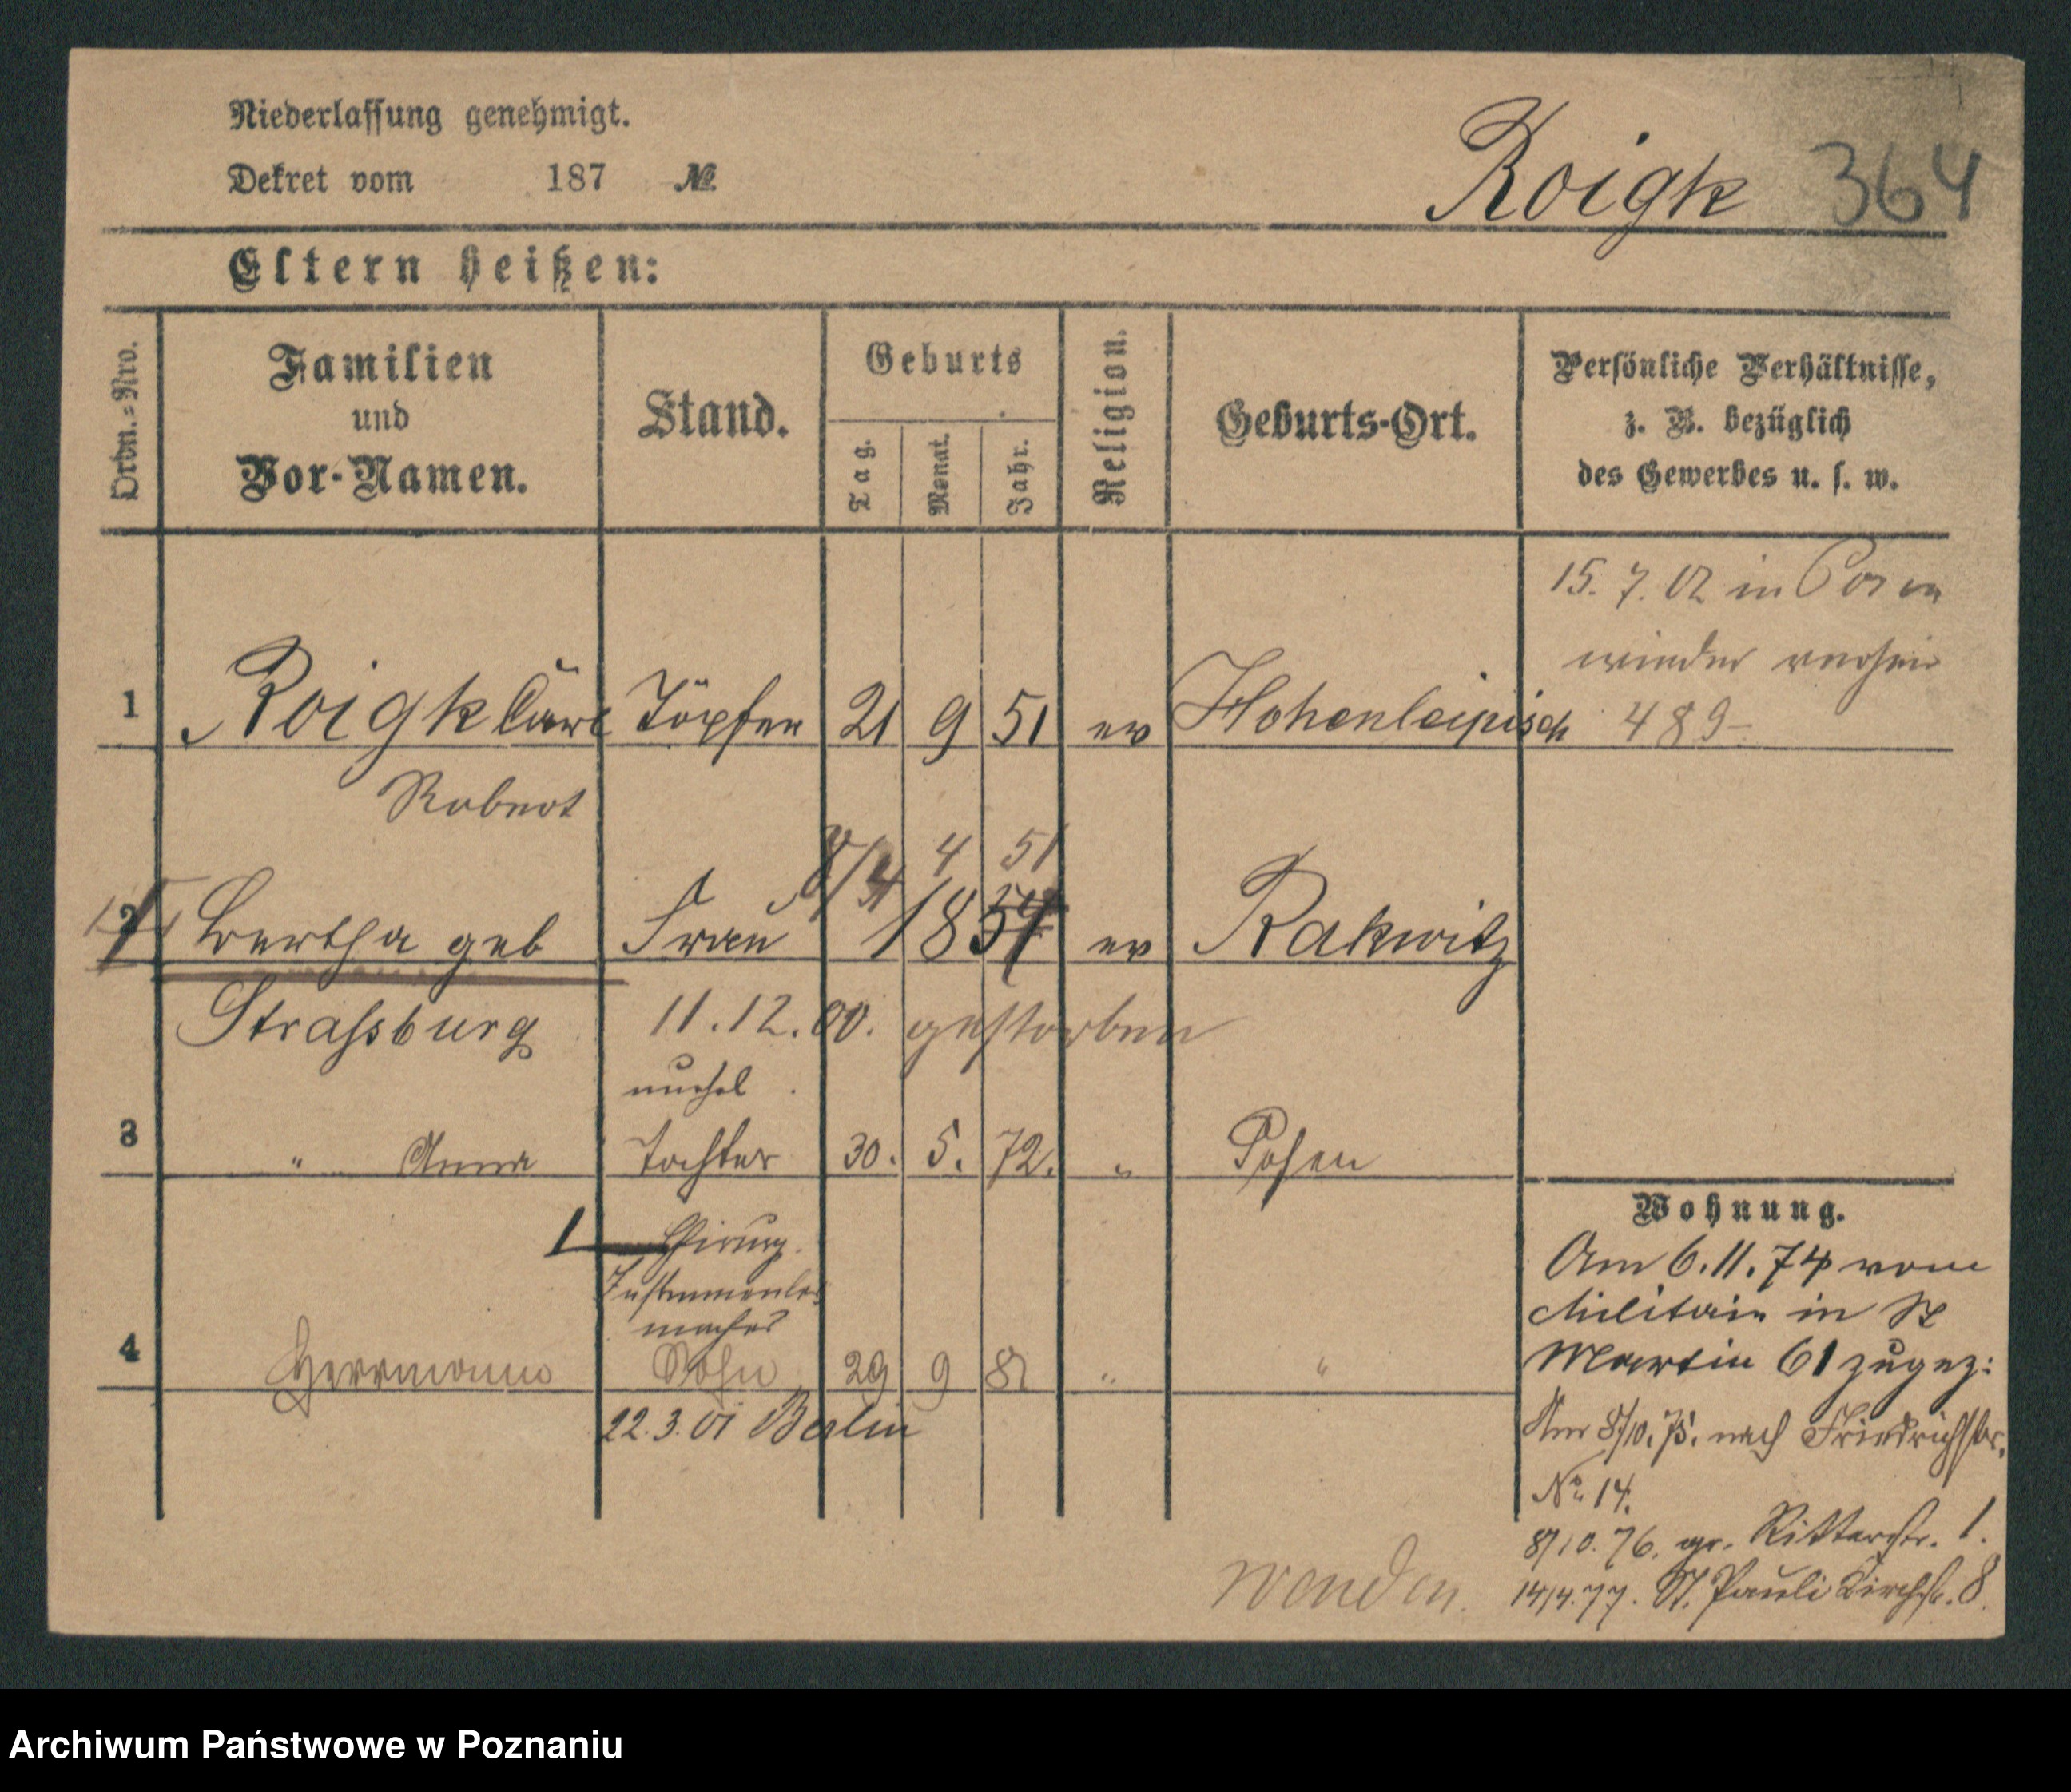 Niederlassung genehmigt.
Dekret vom 187 №
Roigk 364
Eltern heißen:
Ordn.=Nro.
Familien
und
Vor-Namen.
Stand.
Geburts
Tag.
Monat.
Jahr.
Religion.
Geburts-Ort.
Persönliche Verhältnisse,
z. B. bezüglich
des Gewerbes u. s. w.
15. 7. 02 in
wieder
1 Roigk Carl Töpfer 21 9 51 ev Hohenleipisch 489
Robert
8/4 4 51
2 Bertha geb Frau 1854 ev Rakwitz
Strassburg 11.12.00. gestorben
unehel.
3 " Anna Tochter 30. 5. 72. " Posen
Chirurg.
Instrumenten
macher
4 Herrmann Sohn 29 9 81 " "
22.3.01 Berlin
Wohnung.
Am 6.11.74 vom
Militair in St
Martin 61 zugez:
Am 8/10.75. nach Friedrichstr.
No. 14.
8/10.76. gr. Ritterstr. 1.
14/4.77. St. Pauli Kirchstr. 8.
wenden.
Archiwum Państwowe w Poznaniu